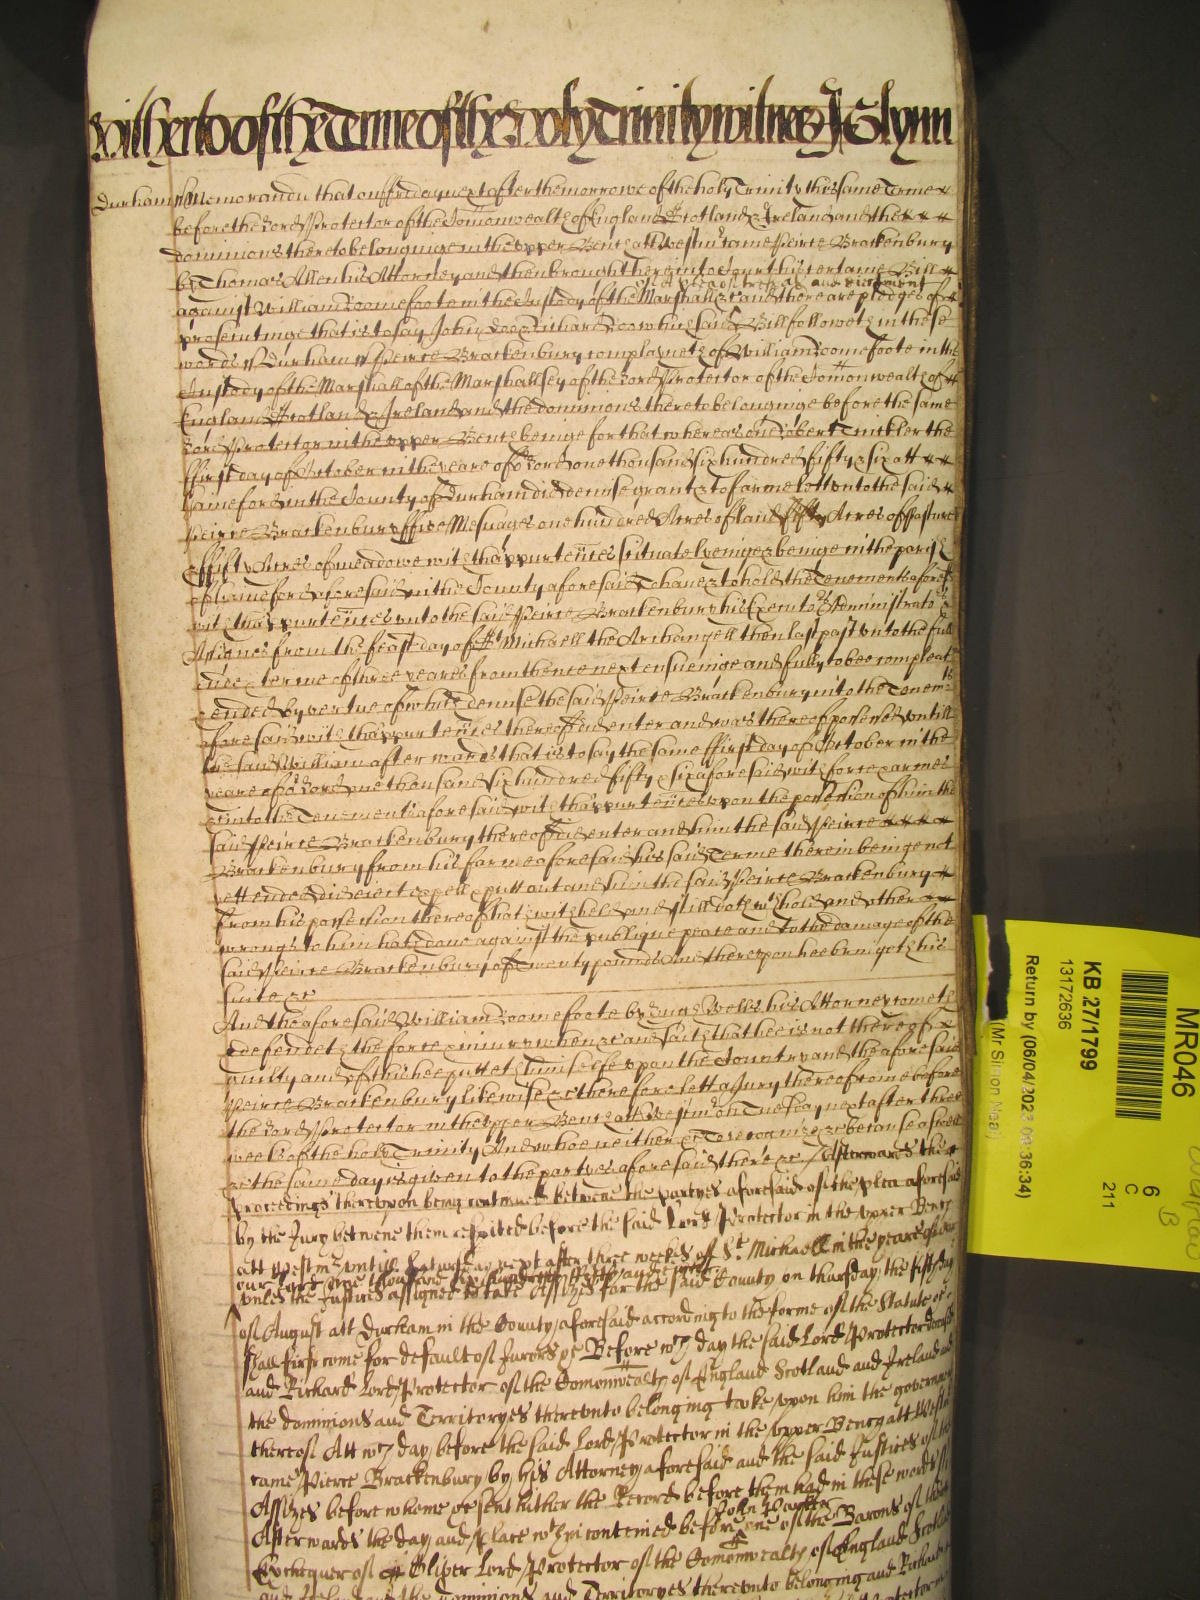 witherto of the Terme of the holy Trinity witnes J Glynn
Durham Memorandu that on ffryday next after the morrowe of the holy Trinity this same Terme
before the Lord Protector of the Comonwealth of England Scotland & Ireland and the
dominions thereto belonginge in the upper Bench att Westmr came Peirce Brackenbury
by Thomas Allen his Attorney and then brought here into Court his certaine Bill
of a plea of trespas and eiectment
against William Loomefoote in the Custody of the Marshall &c and there are pledges of
prosecutinge that is to say John Doo & Richard Roo which said Bill followeth in these
words ss Durham ss Peirce Brackenbury complayneth of William Loomefoote in the
Custody of the Marshall of the Marshallsey of the Lord Protector of the Comonwealth of
England Scotland & Ireland and the dominions thereto belonginge before the same
Lord Protector in the upper Bench beinge for that whereas one Robert Trickler the
ffirst day of October in the yeare of or Lord one thousand six hundred fifty & six att
Gaineford in the County of Durham did demise grant & to farme lett unto the said
Peirce Brackenbury ffive Mesuages one hundred Acres of land fifty Acres of Pasture
& ffifty Acres of meadowe with thappurtences scituate lyeinge & beinge in the parish
of Gaineford aforesaid in the County aforesaid To have & to hold the Tenements aforesd
with thappurtences unto the said Peirce Brackenbury his Executors Administrators &
Assignes from the feast day of St Michaell the Archangell then last past unto the full
ende & terme of three yeares from thence next ensueinge and fully to bee compleate
& ended by vertue of which demise the said Peirce Brackenbury into the Tenemts
aforesaid with thappurtences thereof did enter and was thereof possessed untill
the said William afterwards that is to say the same ffirst day of October in the
yeare of or Lord one thousand six hundred fifty & six aforesaid with force & armes
&c into the Tenements aforesaid with thappurtences upon the possession of him the
said Peirce Brackenbury thereof did enter and him the said Peirce
Brackenbury from his farme aforesaid his said Terme therein beinge not
yett ended did eiect expell & putt out and him the said Peirce Brackenbury
from his possession thereof hath withheld and still doth wthhold and other
wrongs to him hath done against the publique peace and to the damage of the
said Peirce Brackenbury of Twenty pounds And thereupon hee bringeth his
suite &c
And the aforesaid William Loomefoote by Wells his Attorney cometh
& defendeth the force & iniury when &c and saith that hee is not thereof
guilty and of this hee putteth himselfe upon the Country and the aforesaid
Peirce Brackenbury likewise &c therefore lett a Jury thereof come before
the Lord Protector in the upper Bench att Westmr on Tuesday next after three
weekes of the holy Trinity And whoe neither &c To recognize &c because aswell
&c the same day is given to the partyes aforesaid there &c / Afterwards the
proceedings thereupon being continued betwene the partyes aforesaid of the plea aforesaid
by the Jury betwene them respited before the said Lord Protector in the upper Bench
att Westmr untill Saturday next after three weekes of St Michaell in the yeare of
our Lord one thousand six hundred fifty and eight
unles the Justices assigned to take Assizes for the said County on thursday the fifth day
of August att Durham in the County aforesaid according to the forme of the Statute &c
shall first come for default of Jurors &c Before wch day the said Lord Protector deceased
and Richard Lord Protector of the Comonwealth of England Scotland and Ireland and
the dominions and Territoryes thereunto belonging tooke upon him the governmt
thereof Att wch day before the said Lord Protector in the upper Bench att Westmr
came Pierce Brackenbury by his Attorney aforesaid and the said Justices of the
Assizes before whome &c sent hither the Record before them had in these words ss
Afterwards the day and place wthin conteined before John Parker one of the Barons of the
Exchequer of Oliver Lord Protector of the Comonwealth of England Scotland
and Ireland and the Dominions and Territoryes thereunto belonging and
MR046
KB 27/1799
13172636
Return by (06/04/2023 09:36:34)
(Mr Simon Neal)
6
C
211
B